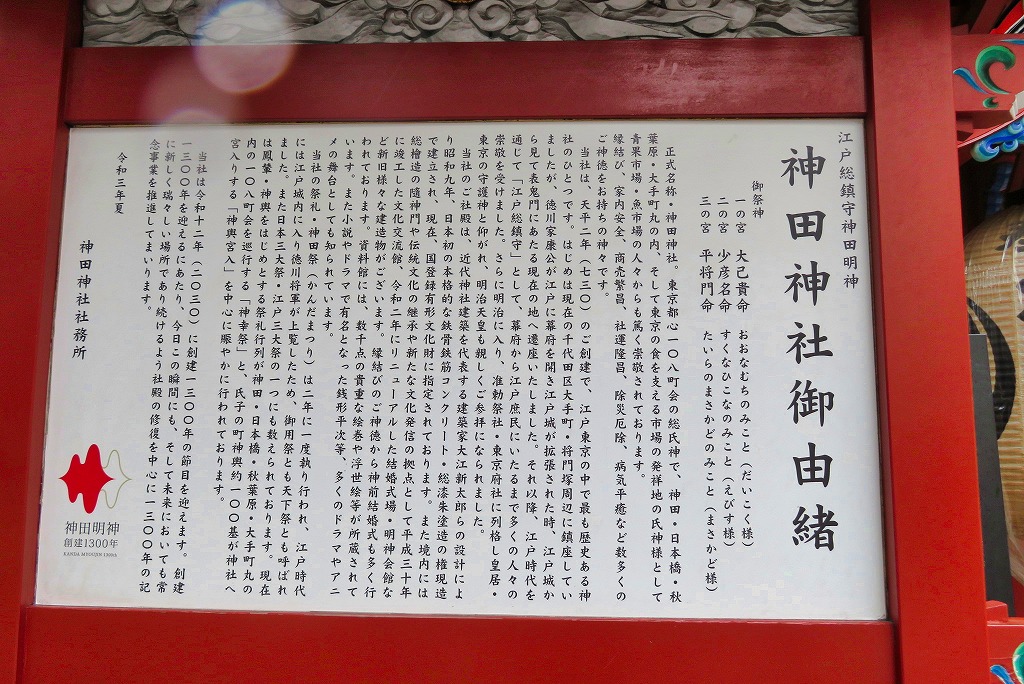 江戸総鎮守神田明神
神田神社御由緒
御祭神
一の宮 大己貴命 おおなむちのみこと(だいこく様)
二の宮 少彦名命 すくなひこなのみこと(えびす様)
三の宮 平将門命 たいらのまさかどのみこと(まさかど様)
正式名称・神田神社。東京都心一〇八町会の総氏神で、神田・日本橋・秋
葉原・大手町丸の内、そして東京の食を支える市場の発祥地の氏神様として
青果市場・魚市場の人々からも篤く崇敬されております。
縁結び、家内安全、商売繁昌、社運隆昌、除災厄除、病気平癒など数多くの
ご神徳をお持ちの神々です。
当社は、天平二年(七三〇)のご創建で、江戸東京の中で最も歴史ある神
社のひとつです。はじめは現在の千代田区大手町・将門塚周辺に鎮座してい
ましたが、徳川家康公が江戸に幕府を開き江戸城が拡張された時、江戸城か
ら見て表鬼門にあたる現在の地へ遷座いたしました。それ以降、江戸時代を
通じて「江戸総鎮守」として、幕府から江戸庶民にいたるまで多くの人々の
崇敬を受けました。さらに明治に入り、准勅祭社・東京府社に列格し皇居・
東京の守護神と仰がれ、明治天皇も親しくご参拝になられました。
当社のご社殿は、近代神社建築を代表する建築家大江新太郎らの設計によ
り昭和九年、日本初の本格的な鉄骨鉄筋コンクリート・総漆朱塗造の権現造
で建立され、現在、国登録有形文化財に指定されております。また境内には
総檜造の隨神門や伝統文化の継承や新たな文化発信の拠点として平成三十年
に竣工した文化交流館、令和二年にリニューアルした結婚式場・明神会館な
ど新旧様々な建造物がございます。縁結びのご神徳から神前結婚式も多く行
われております。資料館には、数千点の貴重な絵巻や浮世絵等が所蔵されて
います。また小説やドラマで有名となった銭形平次等、多くのドラマやアニ
メの舞台としても知られています。
当社の祭礼・神田祭(かんだまつり)は二年に一度執り行われ、江戸時代
には江戸城内に入り徳川将軍が上覧したため、御用祭とも天下祭とも呼ばれ
ました。また日本三大祭・江戸三大祭の一つにも数えられております。現在
は鳳輦・神輿をはじめとする祭礼行列が神田・日本橋・秋葉原・大手町丸の
内の一〇八町会を巡行する「神幸祭」と、氏子の町神輿約一〇〇基が神社へ
宮入りする「神輿宮入」を中心に賑やかに行われております。
当社は令和十二年(二〇三〇)に創建一三〇〇年の節目を迎えます。創建
一三〇〇年を迎えるにあたり、今日この瞬間にも、そして未来においても常
に新しく瑞々しい場所であり続けるよう社殿の修復を中心に一三〇〇年の記
念事業を推進してまいります。
令和三年夏
神田神社社務所
神田明神
創建1300年
KANDA MYOUJIN 1300th